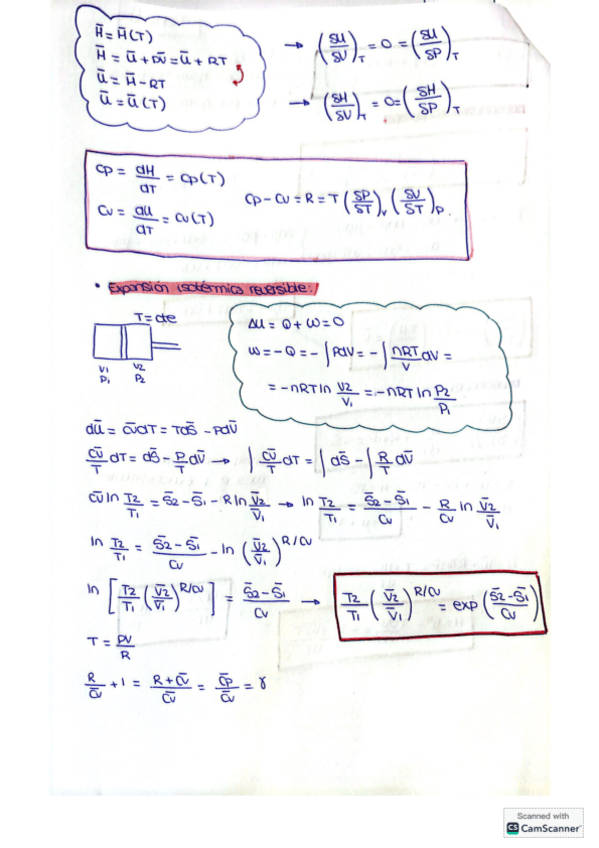 H̄ = H̄(T)
H̄ = Ū + PV̄ = Ū + RT
Ū = H̄ - RT
Ū = Ū(T)
→ (δU/δV)_T = 0 = (δU/δP)_T
→ (δH/δV)_T = 0 = (δH/δP)_T
Cp = dH/dT = Cp(T)
Cv = dU/dT = Cv(T)
Cp - Cv = R = T (δP/δT)_V (δV/δT)_P.
• Expansión isotérmica reversible:
T = cte
V1 V2
P1 P2
ΔU = Q + W = 0
W = -Q = -∫PdV = -∫ nRT/V dV =
= -nRT ln V2/V1 = -nRT ln P2/P1
dŪ = C̄vdT = TdS̄ - PdV̄
C̄v/T dT = dS̄ - P/T dV̄ → ∫ C̄v/T dT = ∫ dS̄ - ∫ R/T dV̄
C̄v ln T2/T1 = S̄2 - S̄1 - R ln V̄2/V̄1 → ln T2/T1 = S̄2 - S̄1/Cv - R/Cv ln V̄2/V̄1
ln T2/T1 = S̄2 - S̄1/Cv - ln (V̄2/V̄1)^R/Cv
ln [T2/T1 (V̄2/V̄1)^R/Cv] = S̄2 - S̄1/Cv → T2/T1 (V̄2/V̄1)^R/Cv = exp (S̄2 - S̄1/Cv)
T = PV/R
R/C̄v + 1 = R + C̄v/C̄v = C̄p/C̄v = γ
Scanned with
CS CamScanner